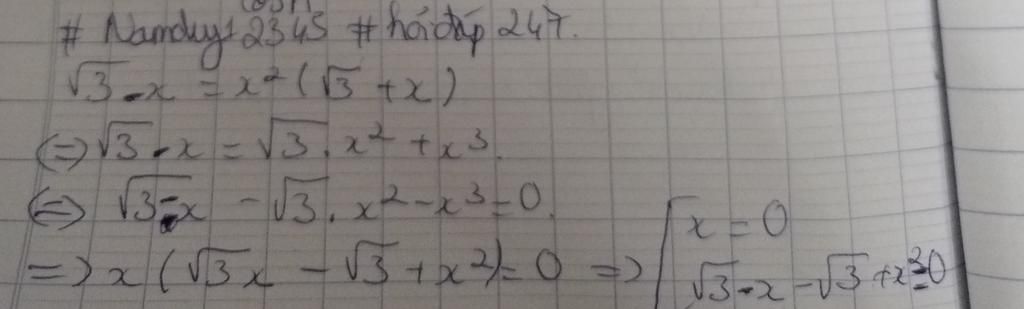 # Namduy12345 # hỏi đáp 247.
√3 - x = x² (√3 + x)
(=) √3 - x = √3 . x² + x³.
(=) √3 - x - √3 . x² - x³ = 0.
=> x (√3 x - √3 + x²) = 0 => [ x = 0
√3 - x - √3 + x² = 0